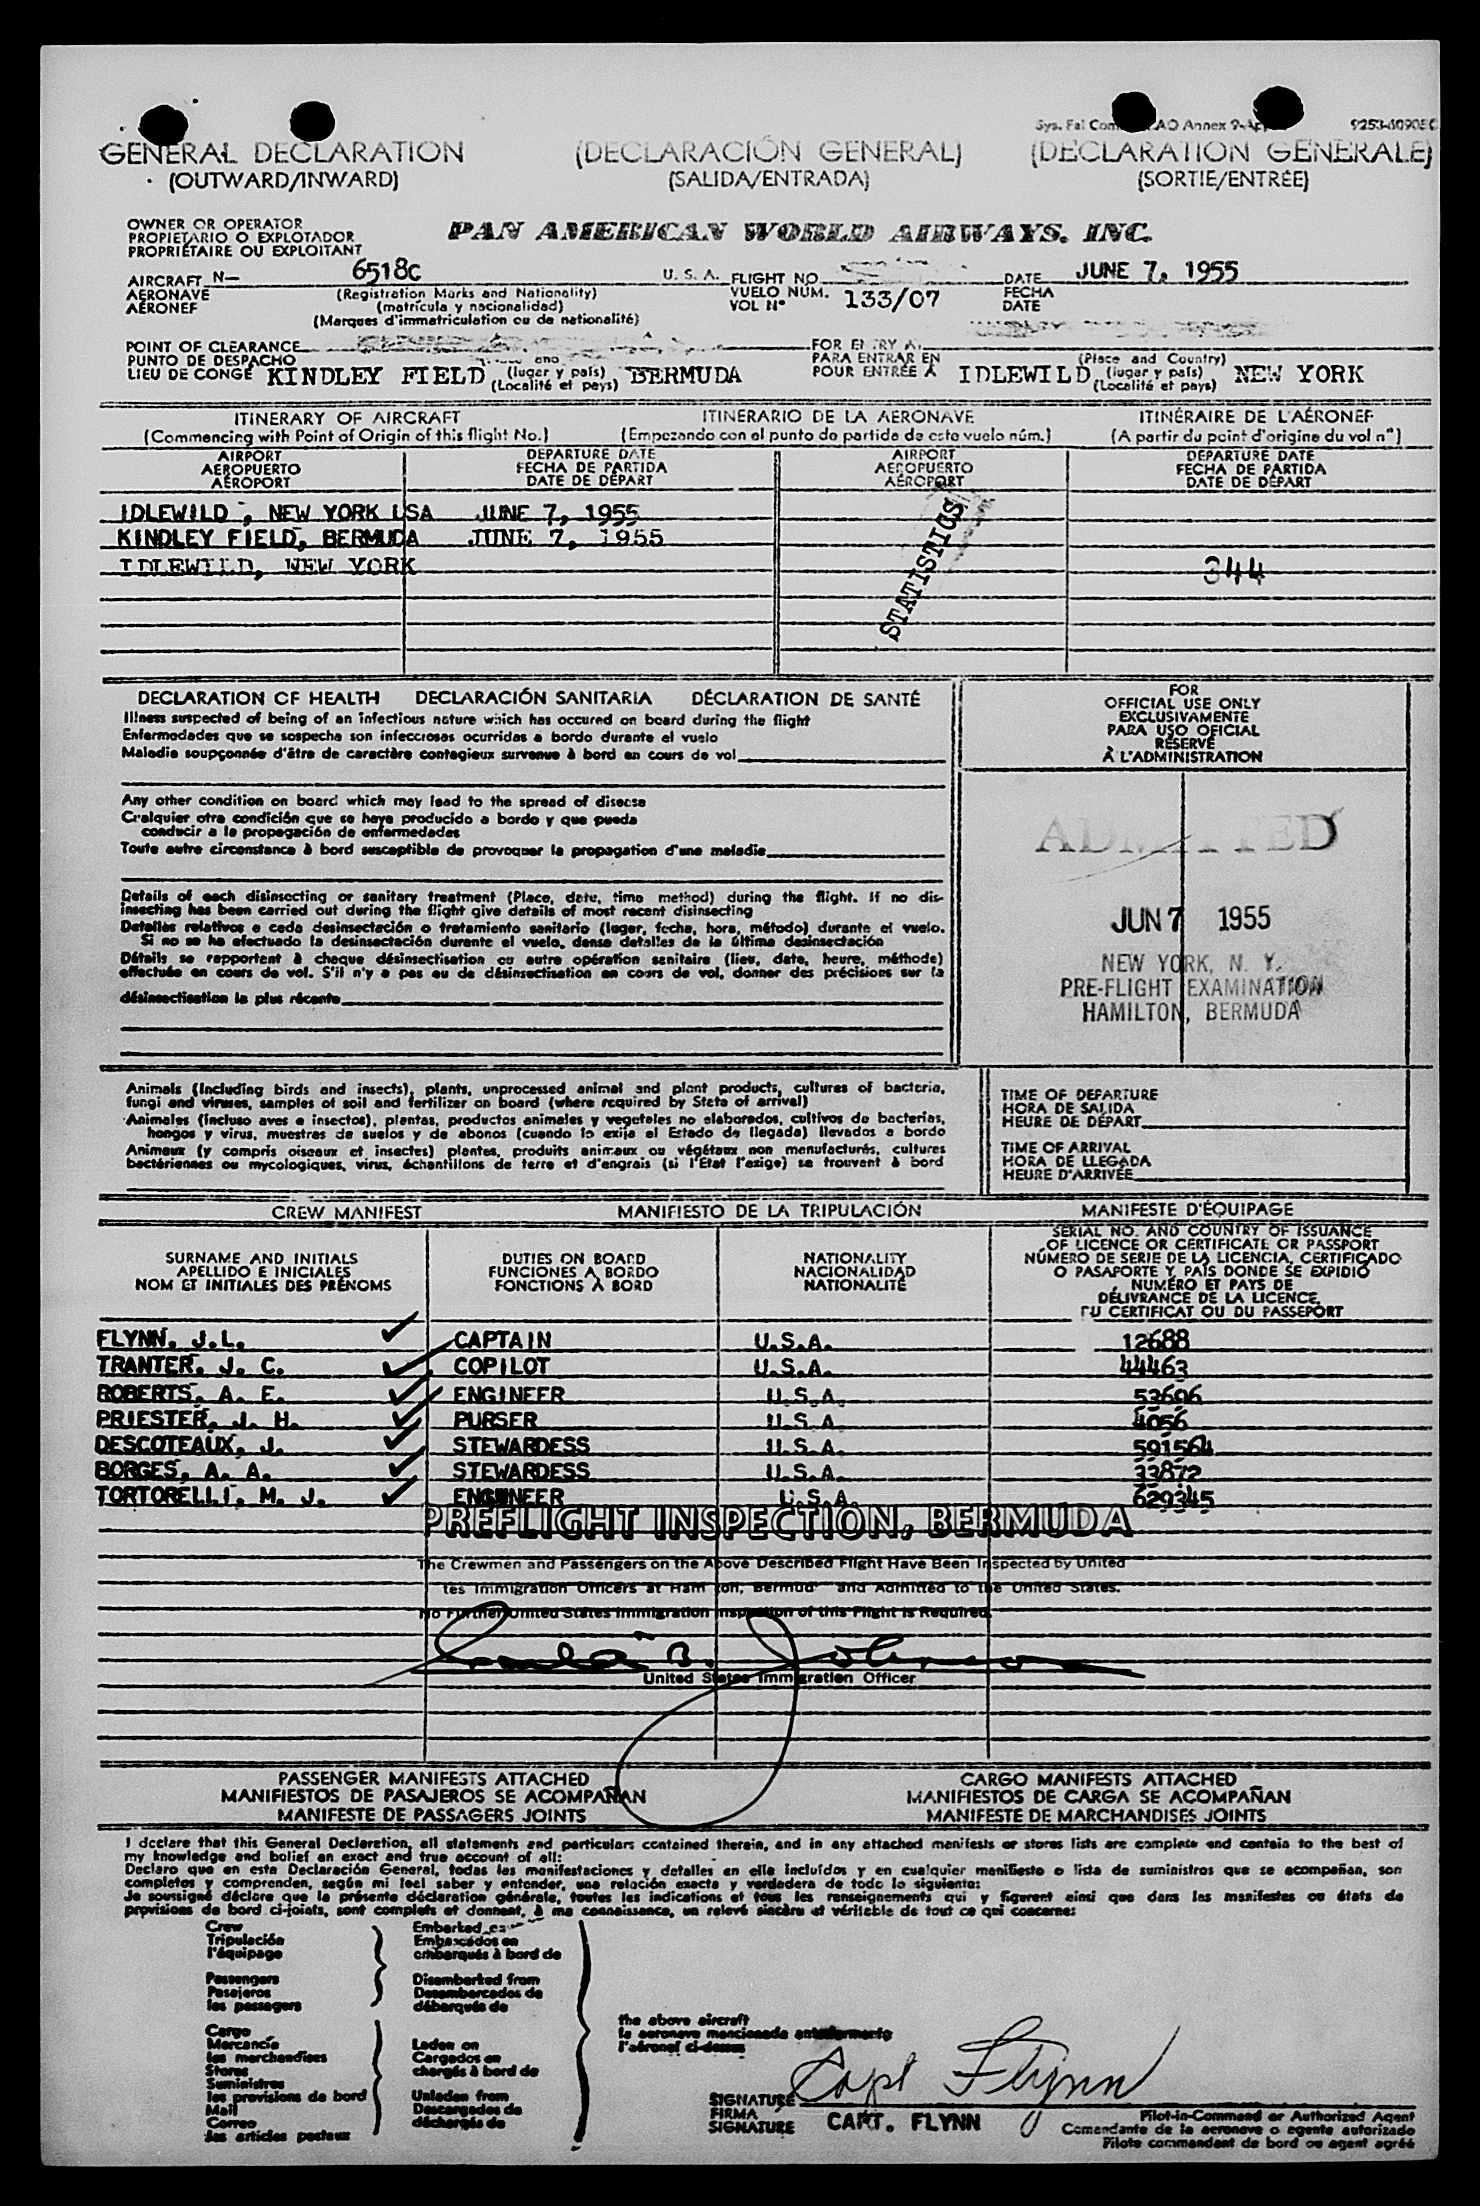 9253-60905C
GENERAL DECLARATION (DECLARACIÓN GENERAL) (DECLARATION GENERALE)
(OUTWARD/INWARD) (SALIDA/ENTRADA) (SORTIE/ENTRÉE)
OWNER OR OPERATOR
PROPIETARIO O EXPLOTADOR
PROPRIÉTAIRE OU EXPLOITANT
PAN AMERICAN WORLD AIRWAYS, INC.
AIRCRAFT N— 6518C U. S. A. FLIGHT NO. DATE JUNE 7, 1955
AERONAVE (Registration Marks and Nationality) VUELO NUM. 133/07 FECHA
AÉRONEF (matrícula y nacionalidad) VOL N° DATE
(Marques d'immatriculation ou de nationalité)
POINT OF CLEARANCE FOR ENTRY AT
PUNTO DE DESPACHO PARA ENTRAR EN (Place and Country)
LIEU DE CONGÉ KINDLEY FIELD (lugar y país) BERMUDA POUR ENTRÉE À IDLEWILD (lugar y país) NEW YORK
(Localité et pays) (Localité et pays)
ITINERARY OF AIRCRAFT ITINERARIO DE LA AERONAVE ITINÉRAIRE DE L'AÉRONEF
(Commencing with Point of Origin of this flight No.) (Empezando con el punto de partida de este vuelo núm.) (A partir du point d'origine du vol n°)
AIRPORT DEPARTURE DATE AIRPORT DEPARTURE DATE
AEROPUERTO FECHA DE PARTIDA AEROPUERTO FECHA DE PARTIDA
AÉROPORT DATE DE DÉPART AÉROPORT DATE DE DÉPART
IDLEWILD, NEW YORK USA JUNE 7, 1955
KINDLEY FIELD, BERMUDA JUNE 7, 1955
IDLEWILD, NEW YORK
STATISTICS
344
DECLARATION OF HEALTH DECLARACIÓN SANITARIA DÉCLARATION DE SANTÉ
Illness suspected of being of an infectious nature which has occured on board during the flight
Enfermedades que se sospecha son infecciosas ocurridas a bordo durante el vuelo
Maladie soupçonnée d'être de caractère contagieux survenue à bord en cours de vol
Any other condition on board which may lead to the spread of disease
Cualquier otra condición que se haya producido a bordo y que pueda
conducir a la propagación de enfermedades
Toute autre circonstance à bord susceptible de provoquer la propagation d'une maladie
Details of each disinsecting or sanitary treatment (Place, date, time method) during the flight. If no dis-
insecting has been carried out during the flight give details of most recent disinsecting
Detalles relativos a cada desinsectación o tratamiento sanitario (lugar, fecha, hora, método) durante el vuelo.
Si no se ha efectuado la desinsectación durante el vuelo, dense detalles de la última desinsectación
Détails se rapportant à chaque désinsectisation ou autre opération sanitaire (lieu, date, heure, méthode)
effectuée en cours de vol. S'il n'y a pas eu de désinsectisation en cours de vol, donner des précisions sur la
désinsectisation la plus récente
FOR
OFFICIAL USE ONLY
EXCLUSIVAMENTE
PARA USO OFICIAL
RÉSERVÉ
À L'ADMINISTRATION
ADMITTED
JUN 7 1955
NEW YORK, N. Y.
PRE-FLIGHT EXAMINATION
HAMILTON, BERMUDA
Animals (including birds and insects), plants, unprocessed animal and plant products, cultures of bacteria,
fungi and viruses, samples of soil and fertilizer on board (where required by State of arrival)
Animales (incluso aves e insectos), plantas, productos animales y vegetales no elaborados, cultivos de bacterias,
hongos y virus, muestras de suelos y de abonos (cuando lo exija el Estado de llegada) llevados a bordo
Animaux (y compris oiseaux et insectes) plantes, produits animaux ou végétaux non manufacturés, cultures
bactériennes ou mycologiques, virus, échantillons de terre et d'engrais (si l'État l'exige) se trouvant à bord
TIME OF DEPARTURE
HORA DE SALIDA
HEURE DE DÉPART
TIME OF ARRIVAL
HORA DE LLEGADA
HEURE D'ARRIVÉE
CREW MANIFEST MANIFIESTO DE LA TRIPULACIÓN MANIFESTE D'ÉQUIPAGE
SURNAME AND INITIALS
APELLIDO E INICIALES
NOM ET INITIALES DES PRÉNOMS
DUTIES ON BOARD
FUNCIONES A BORDO
FONCTIONS À BORD
NATIONALITY
NACIONALIDAD
NATIONALITÉ
SERIAL NO. AND COUNTRY OF ISSUANCE
OF LICENCE OR CERTIFICATE OR PASSPORT
NÚMERO DE SERIE DE LA LICENCIA, CERTIFICADO
O PASAPORTE Y PAÍS DONDE SE EXPIDIÓ
NUMÉRO ET PAYS DE
DÉLIVRANCE DE LA LICENCE,
DU CERTIFICAT OU DU PASSEPORT
FLYNN, J.L. CAPTAIN U.S.A. 12688
TRANTER, J. C. COPILOT U.S.A. 44463
ROBERTS, A. E. ENGINEER U.S.A. 53606
PRIESTER, J. H. PURSER U.S.A. 4056
DESCOTEAUX, J. STEWARDESS U.S.A. 591564
BORGES, A. A. STEWARDESS U.S.A. 33872
TORTORELLI, M. J. ENGINEER U.S.A. 629345
PREFLIGHT INSPECTION, BERMUDA
The Crewmen and Passengers on the Above Described Flight Have Been Inspected by United
tes Immigration Officers at Hamilton, Bermuda and Admitted to the United States.
No Further United States Immigration Inspection of this Flight is Required.
B. Johnson
United States Immigration Officer
PASSENGER MANIFESTS ATTACHED CARGO MANIFESTS ATTACHED
MANIFIESTOS DE PASAJEROS SE ACOMPAÑAN MANIFIESTOS DE CARGA SE ACOMPAÑAN
MANIFESTE DE PASSAGERS JOINTS MANIFESTE DE MARCHANDISES JOINTS
I declare that this General Declaration, all statements and particulars contained therein, and in any attached manifests or stores lists are complete and contain to the best of
my knowledge and belief an exact and true account of all:
Declaro que en esta Declaración General, todas las manifestaciones y detalles en ella incluídos y en cualquier manifiesto o lista de suministros que se acompañan, son
completos y comprenden, según mi leal saber y entender, una relación exacta y verdadera de todo lo siguiente:
Je soussigné déclare que la présente déclaration générale, toutes les indications et tous les renseignements qui y figurent ainsi que dans les manifestes ou états de
provisions de bord ci-joints, sont complets et donnent, à ma connaissance, un relevé sincère et véritable de tout ce qui concerne:
Crew
Tripulación
l'équipage
Passengers
Pasajeros
les passagers
Cargo
Mercancía
les marchandises
Stores
Suministros
les provisions de bord
Mail
Correo
les articles postaux
Embarked on
Embarcados en
embarqués à bord de
Disembarked from
Desembarcados de
débarqués de
Laden on
Cargados en
chargés à bord de
Unladen from
Descargados de
déchargés de
the above aircraft
la aeronave mencionada anteriormente
l'aéronef ci-dessus
Capt Flynn
SIGNATURE
FIRMA
SIGNATURE
CAPT. FLYNN
Pilot-in-Command or Authorized Agent
Comandante de la aeronave o agente autorizado
Pilote commandant de bord ou agent agréé